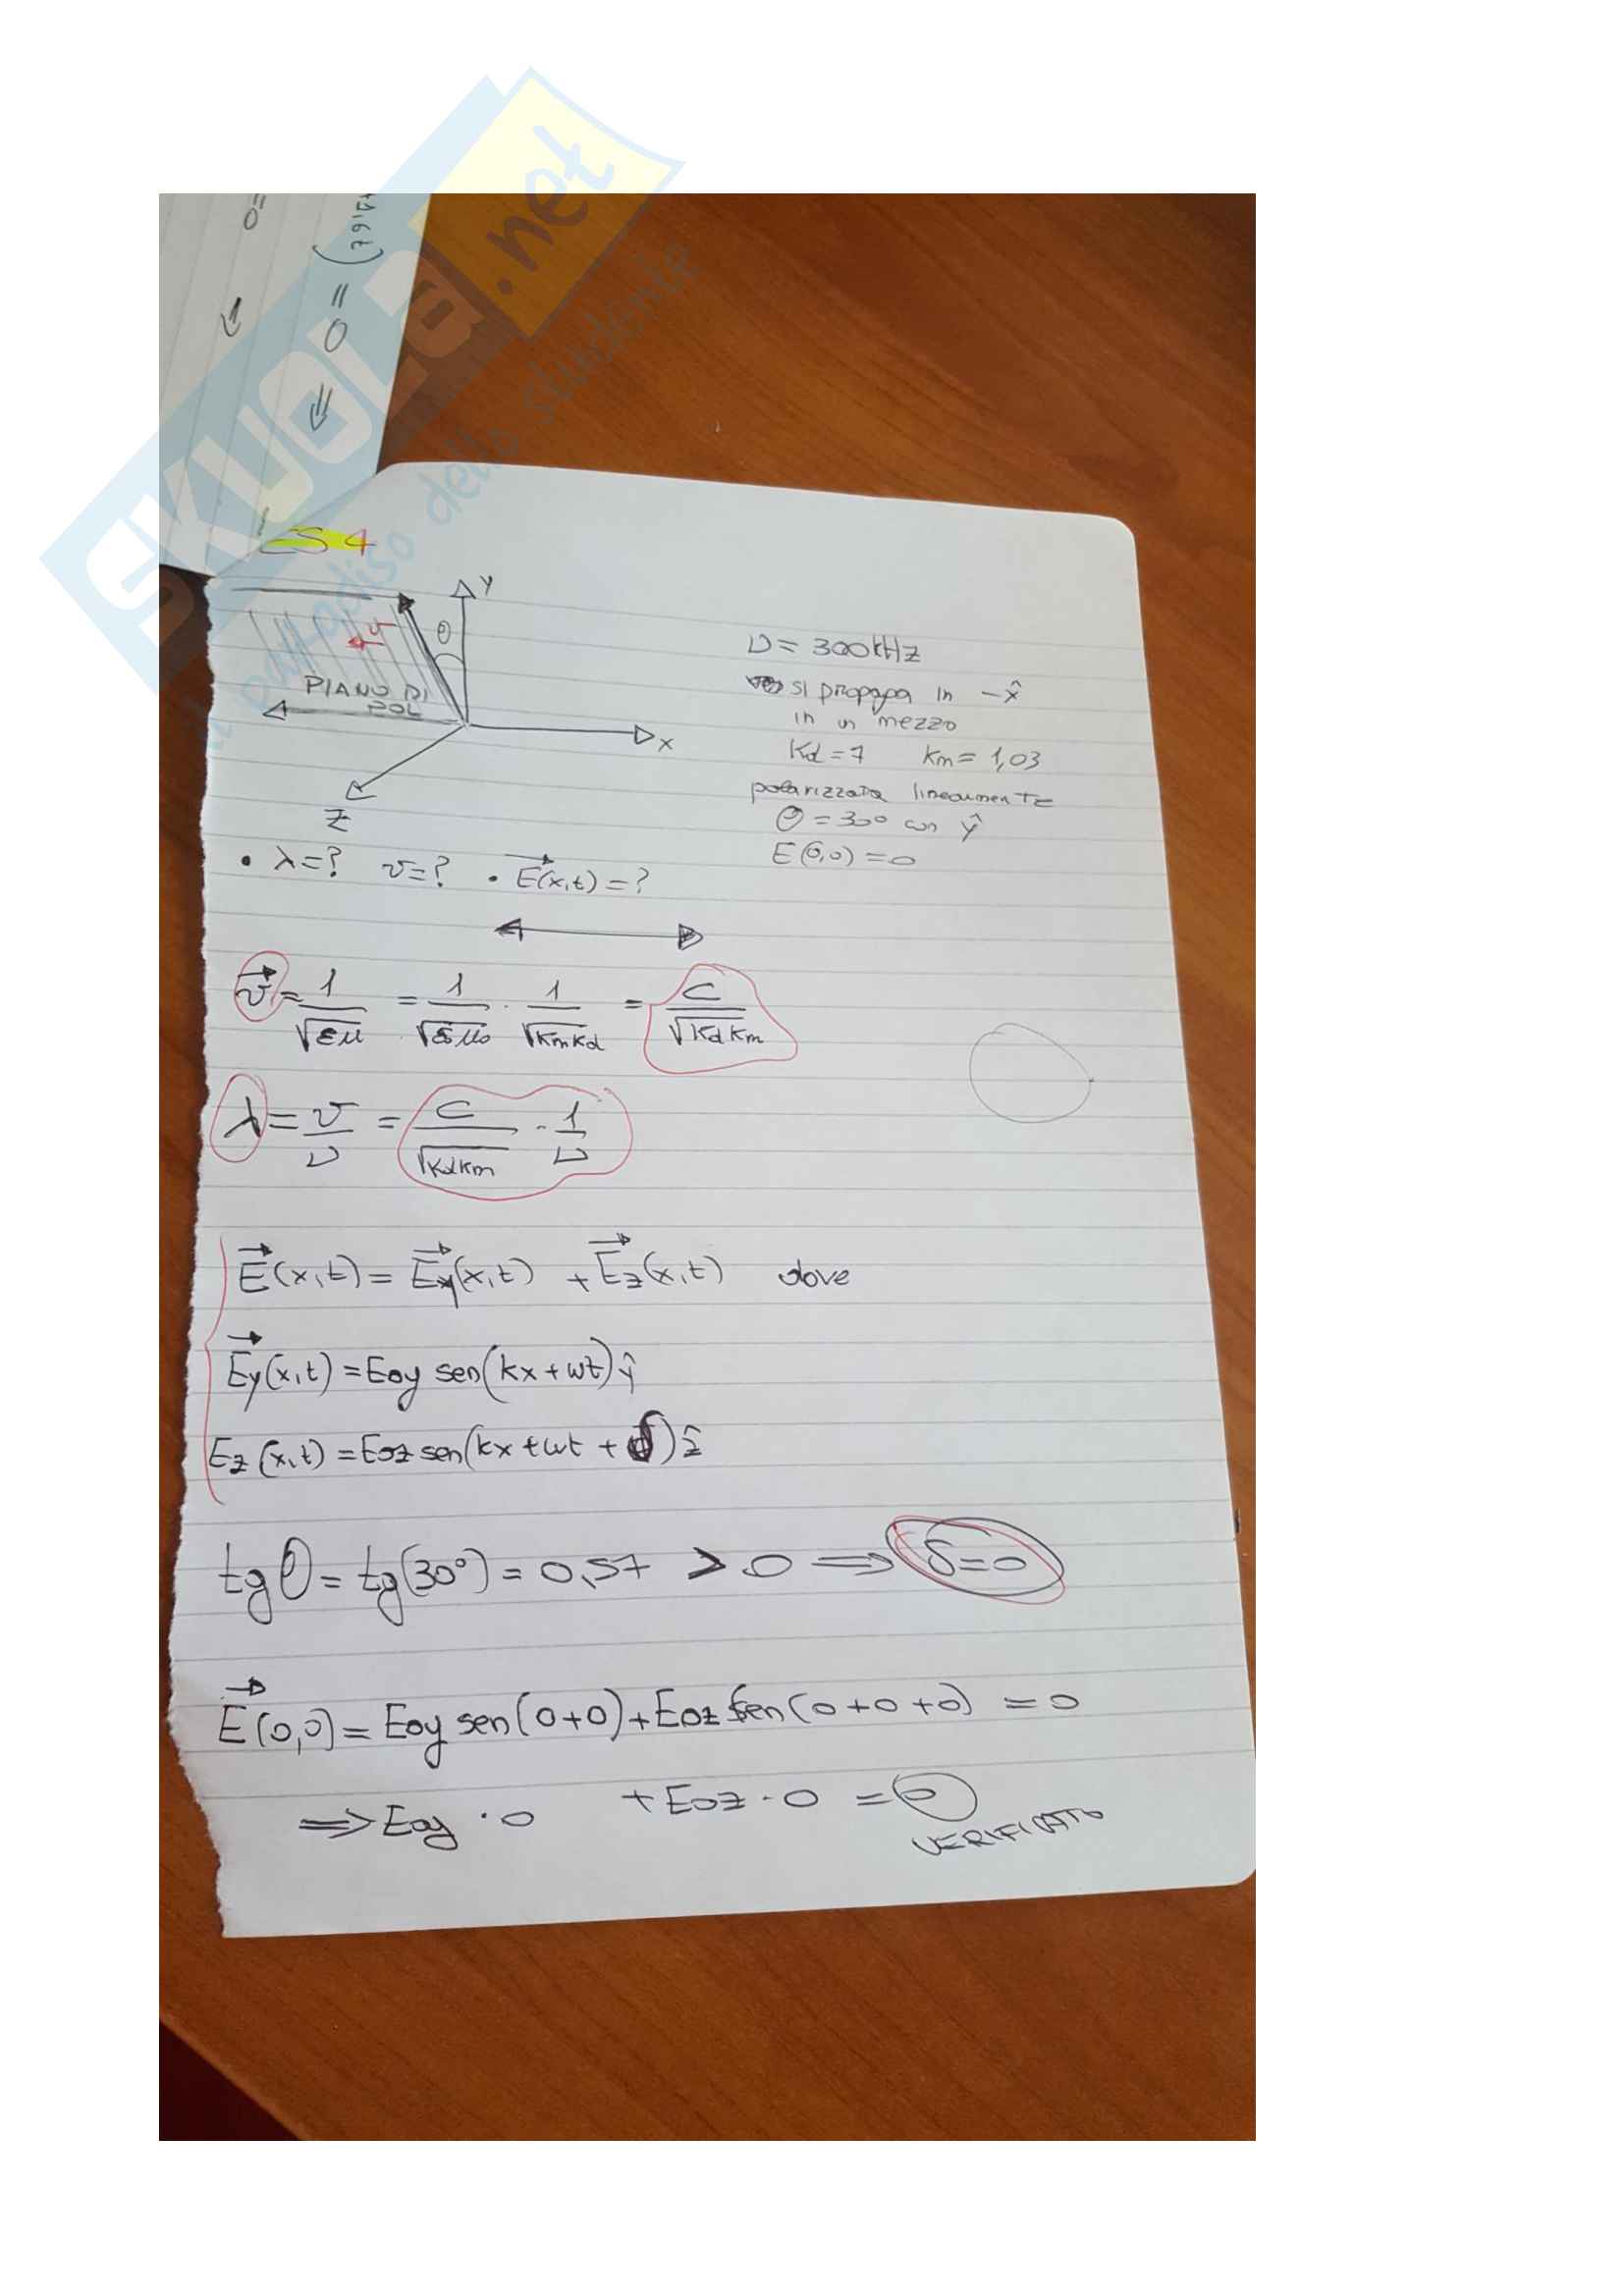 SKUOLA.net
il paradiso dello studente
0=
=0
ES 4
Y
θ
v
PIANO DI
POL
x
Z
ν = 300kHz
si propaga in -x̂
in un mezzo
Kd = 7 km = 1,03
polarizzata linearmente
θ = 30° con ŷ
E(0,0) = 0
• λ=? v=? • E⃗(x,t) = ?
v⃗ = 1/√εμ = 1/√ε₀μ₀ · 1/√kmkd = c/√kdkm
λ = v/ν = c/√kdkm · 1/ν
E⃗(x,t) = E⃗y(x,t) + E⃗z(x,t) dove
E⃗y(x,t) = Eoy sen(kx+wt)ŷ
Ez(x,t) = Eoz sen(kx+wt+δ)ẑ
tgθ = tg(30°) = 0,57 > 0 ⟹ δ=0
E⃗(0,0) = Eoy sen(0+0) + Eoz sen(0+0+0) = 0
⟹ Eoy · 0 + Eoz · 0 = 0
VERIFICATO